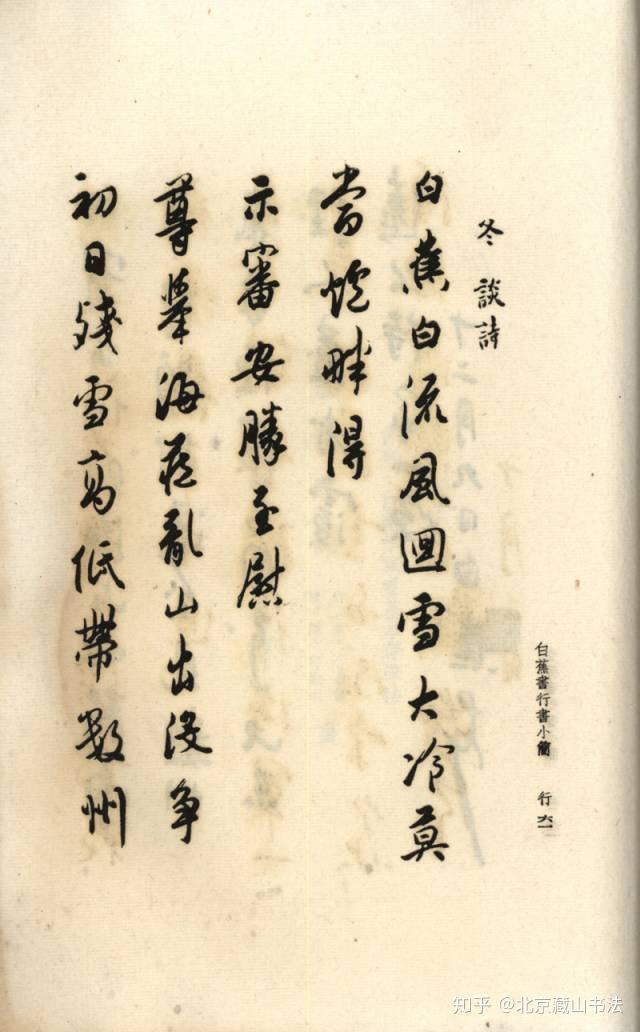 冬 談詩
白蕉白流風迴雪大冷莫
當爐畔得
示審安勝至慰
尊舉海藏亂山出沒爭
初日殘雪高低帶數州
白蕉書行書小簡 行六一
知乎 @北京藏山书法